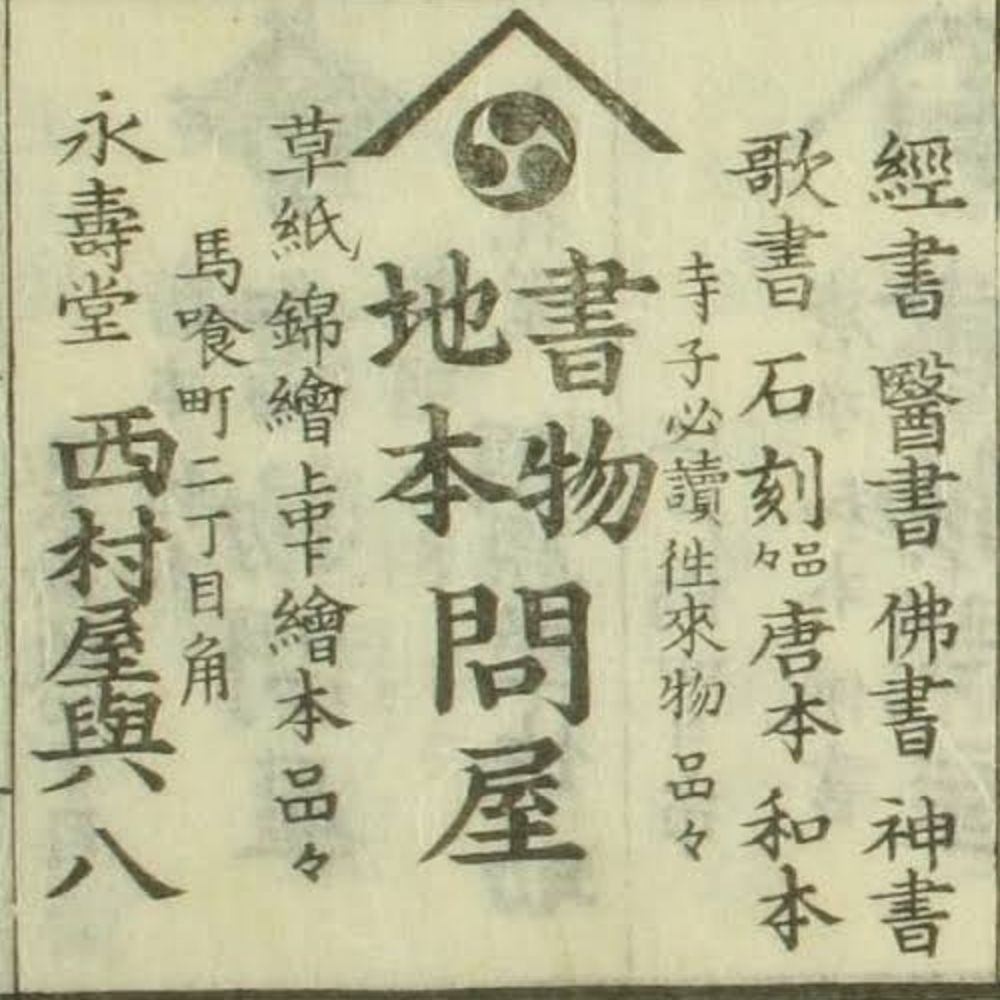 經書 醫書 佛書 神書
歌書 石刻品々 唐本 和本
寺子必讀徃來物 品々
書物
地本
問屋
草紙 錦繪 上中下 繪本 品々
馬喰町二丁目角
永壽堂 西村屋與八